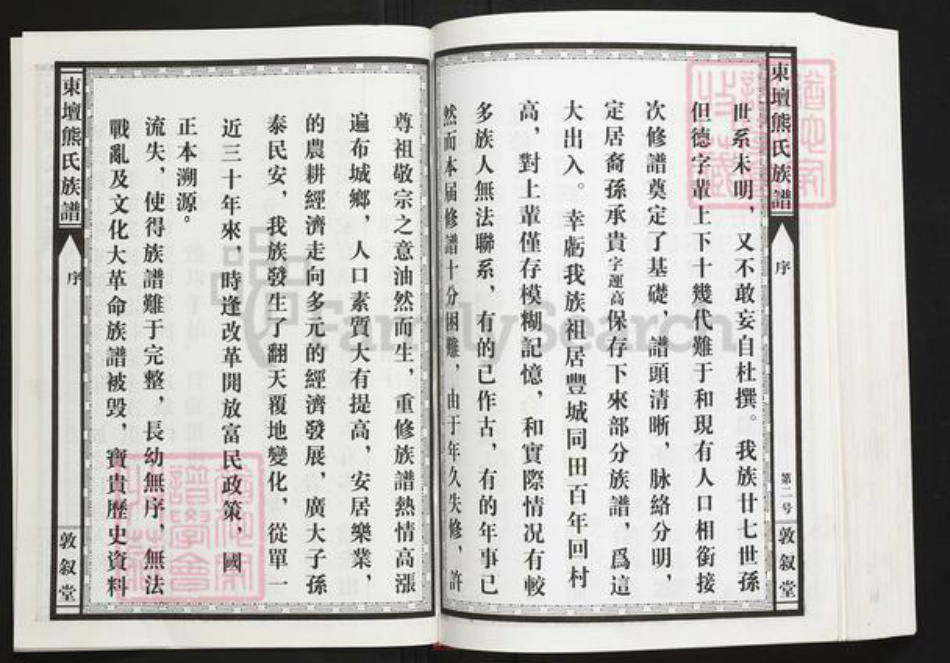 東壇熊氏族譜
序
敦叙堂
戰亂及文化大革命族譜被毁，寶貴歷史資料
流失，使得族譜難于完整，長幼無序，無法
正本溯源。
近三十年來 時逢改革開放富民政策，國
泰民安，我族發生了翻天覆地變化，從單一
的農耕經濟走向多元的經濟發展，廣大子孫
遍布城鄉，人口素質大有提高，安居樂業，
尊祖敬宗之意油然而生，重修族譜熱情高漲
然而本届修譜十分困難，由于年久失修，許
多族人無法聯系，有的已作古，有的年事已
高，對上輩僅存模糊記憶，和實際情况有較
大出入。幸虧我族祖居豐城同田百年回村
定居裔孫承貴字運高保存下來部分族譜，爲這
次修譜奠定了基礎，譜頭清晰，脉絡分明，
但德字輩上下十幾代難于和現有人口相銜接
世系未明，又不敢妄自杜撰。我族廿七世孫
東壇熊氏族譜
序
第二号
敦叙堂
FamilySearch